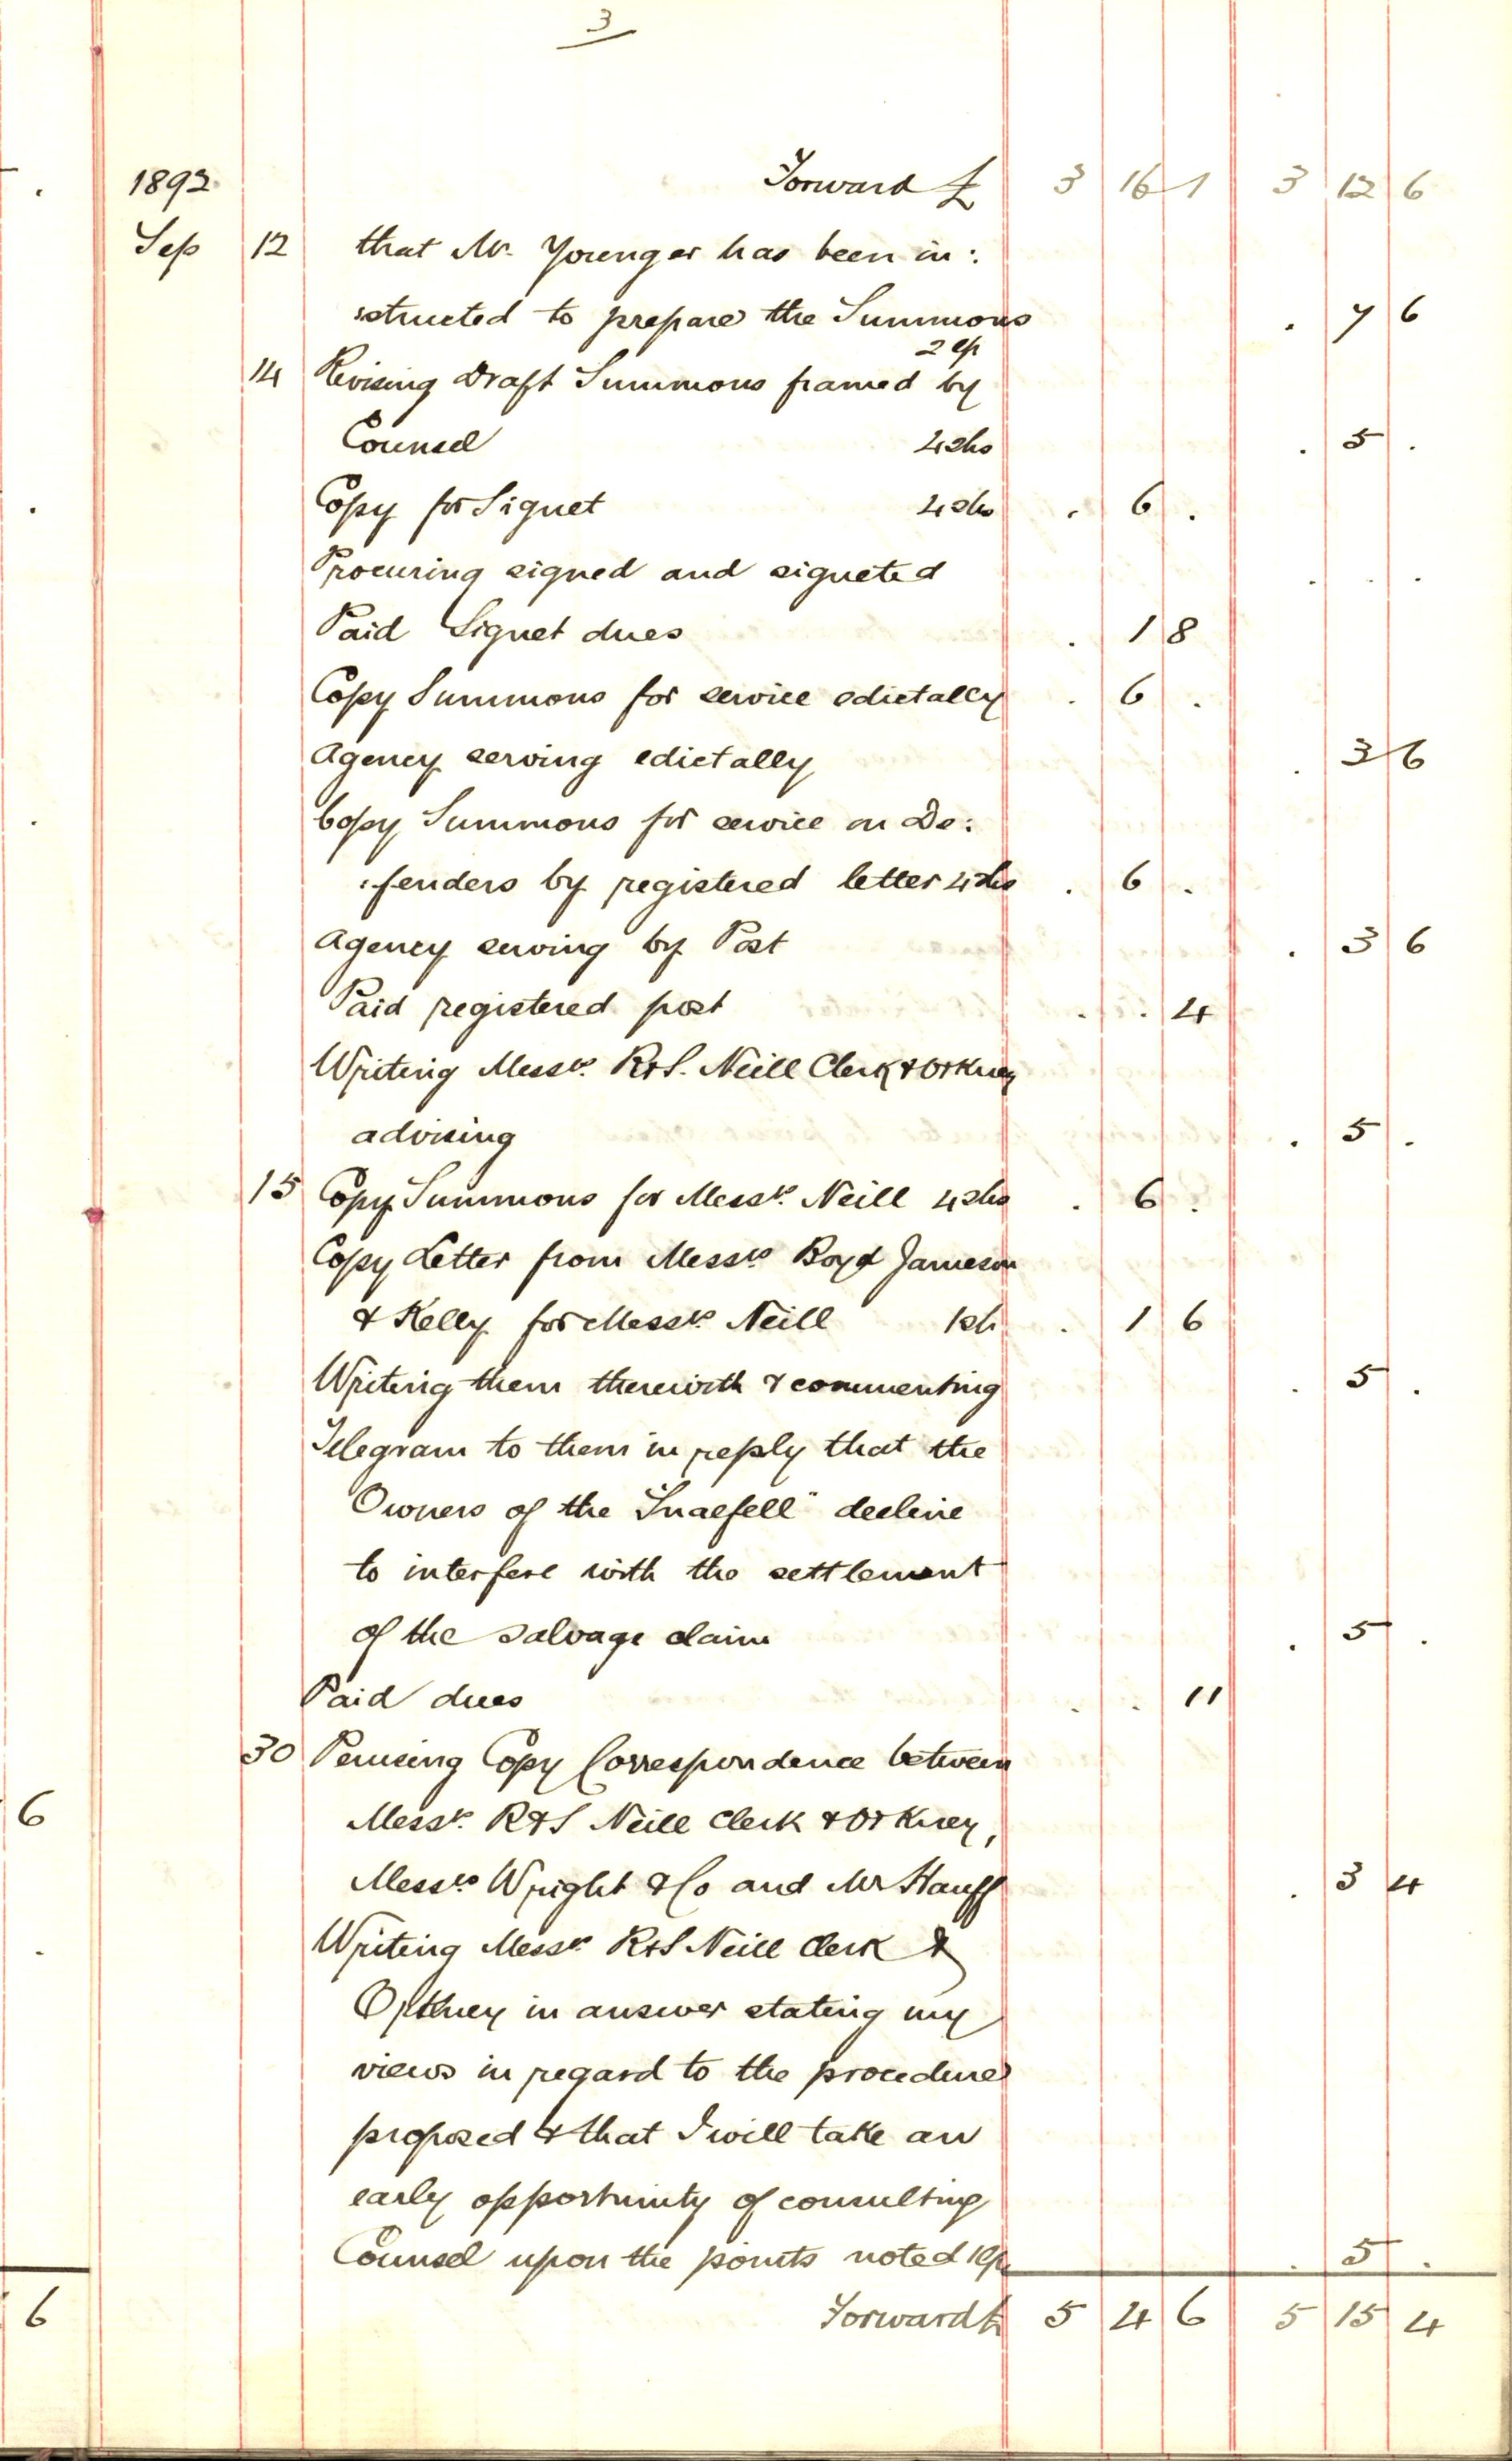 3
1892 Forward £ 3 16 1 3 12 6
Sep 12 that Mr. Younger has been in:
:structed to prepare the Summons . 7 6
2 ep
14 Revising Draft Summons framed by
Counsel 4 shs . 5 .
Copy for Signet 4 shs . 6 .
Procuring signed and signeted . . .
Paid Signet dues . 1 8
Copy Summons for service edictally . 6 .
Agency serving edictally . 3 6
Copy Summons for service on De:
:fenders by registered letter 4 shs . 6 .
Agency serving by Post . 3 6
Paid registered post . . 4
Writing Messrs. R & S. Neill Clerk & Orkney
advising . 5 .
15 Copy Summons for Messrs. Neill 4 shs . 6 .
Copy Letter from Messrs Boyd Jameson
& Kelly for Messrs. Neill 1 sh . 1 6
Writing them therewith & commenting . 5 .
Telegram to them in reply that the
Owners of the "Snaefell" decline
to interfere with the settlement
of the salvage claim . 5 .
Paid dues . . 11
30 Perusing Copy Correspondence between
Messrs. R & S Neill Clerk & Orkney,
Messrs Wright & Co and Mr Hauff . 3 4
Writing Messrs R & S Neill Clerk &
Orkney in answer stating my
views in regard to the procedure
proposed & that I will take an
early opportunity of consulting
Counsel upon the points noted 1 ep . 5 .
Forward £ 5 4 6 5 15 4
6
6